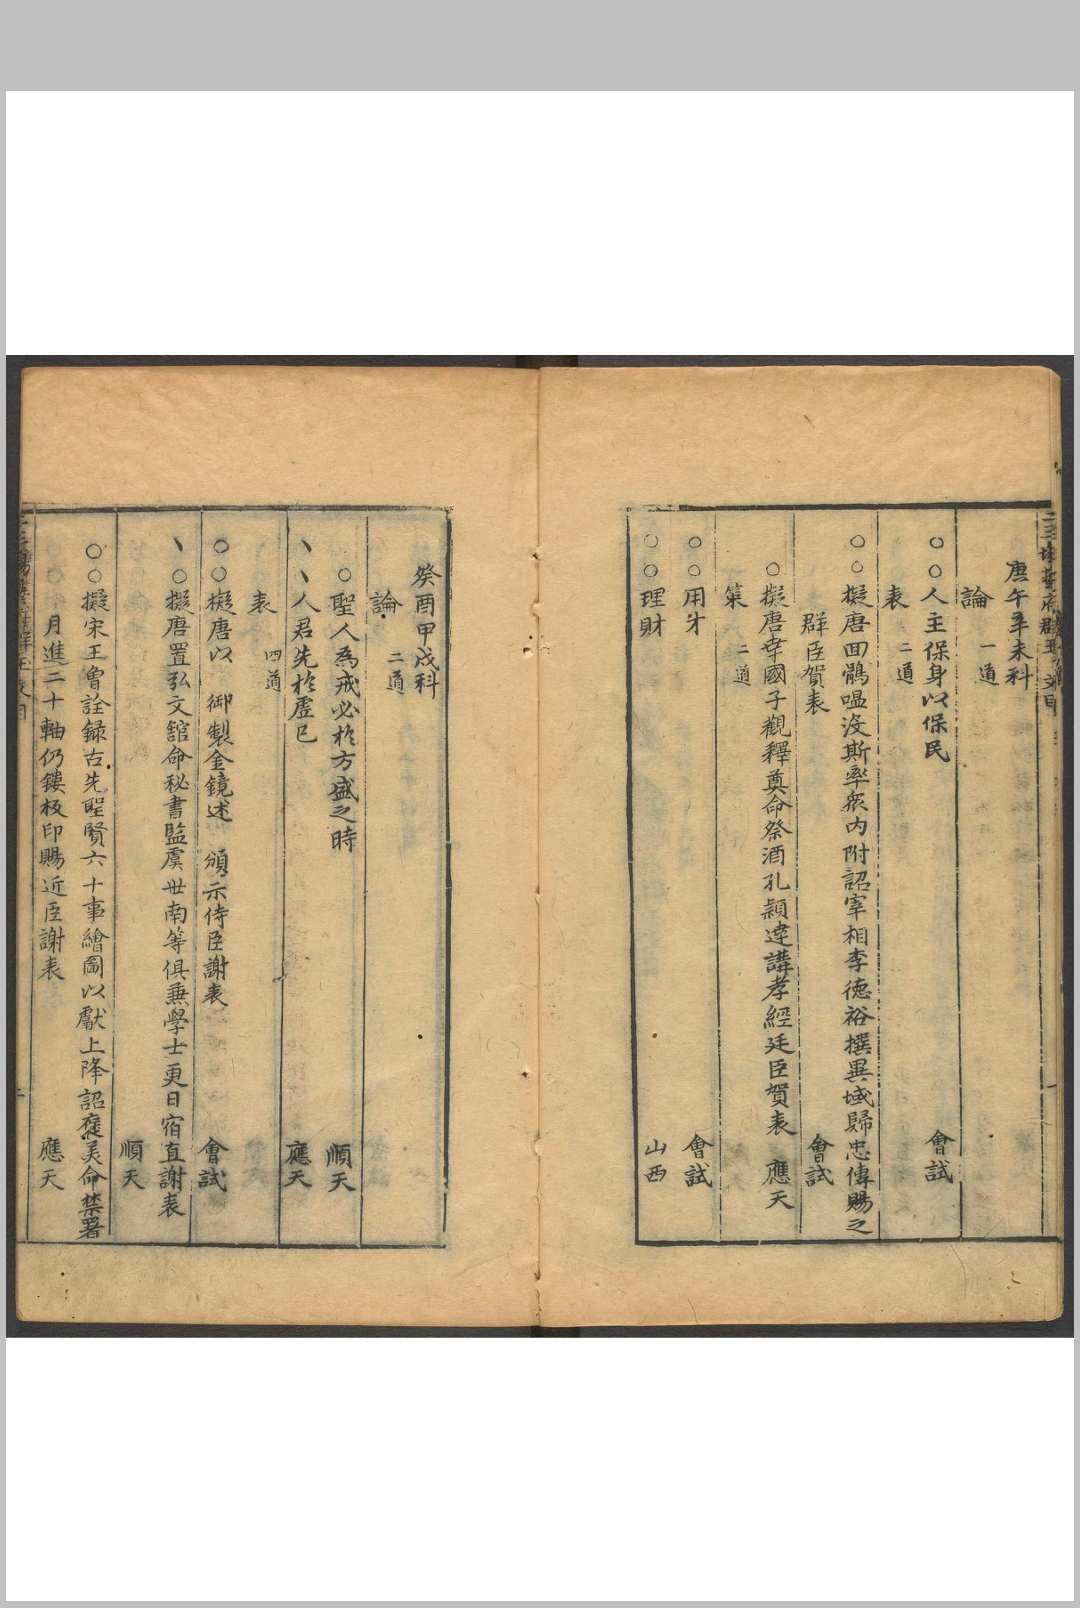 庚午辛未科
論　一道
○○人主保身以保民　會試
表　二道
○○擬唐回鶻嗢没斯率衆内附詔宰相李德裕撰異域歸忠傳賜之
群臣賀表　會試
○擬唐幸國子觀釋奠命祭酒孔穎達講孝經廷臣賀表　應天
策　二道
○○用才　會試
○○理財　山西
癸酉甲戌科
論　二道
○聖人為戒必於方盛之時　順天
、、人君先於虛己　應天
表　四道
○○擬唐以　御製金鏡述　頒示侍臣謝表　會試
、○擬唐置弘文館命秘書監虞世南等俱兼學士更日宿直謝表
順天
○○擬宋王曾詮録古先聖賢六十事繪圖以獻上降詔襃美命禁署
月進二十軸仍鏤板印賜近臣謝表　應天